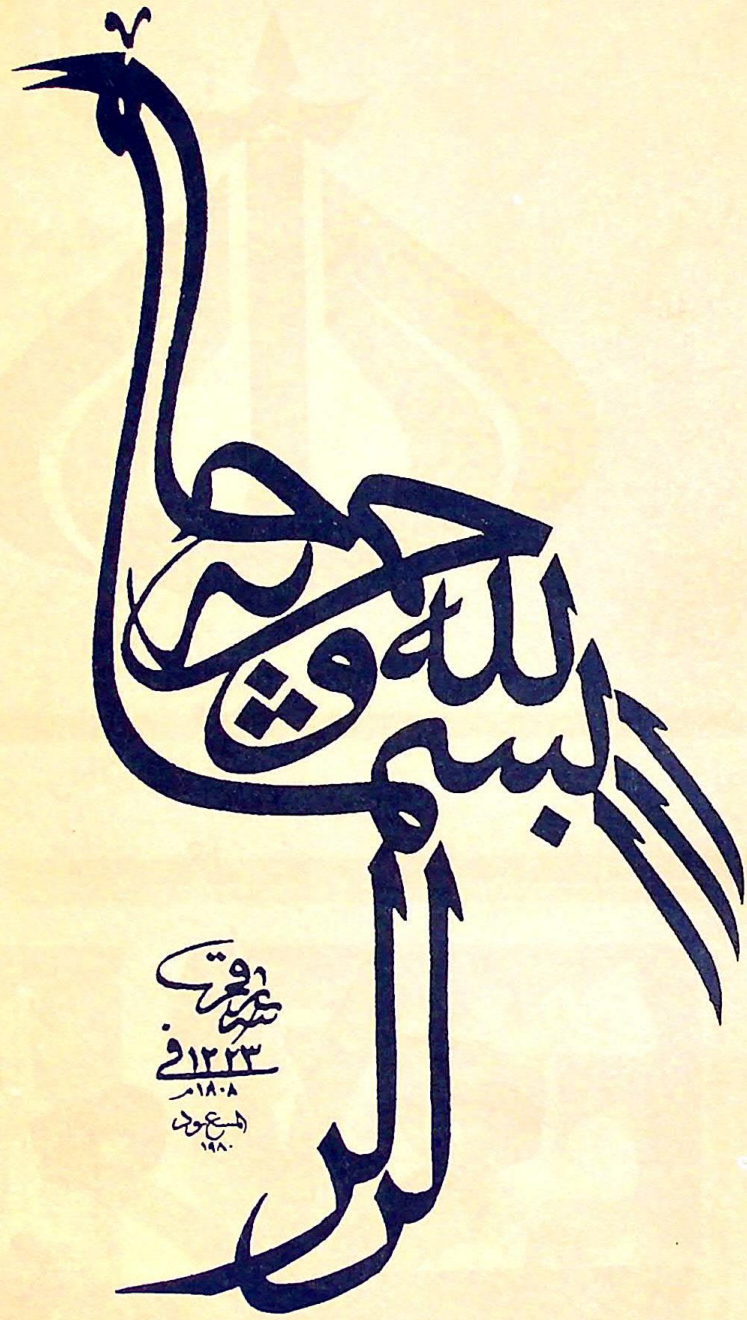 بسم الله الرحمن الرحيم
١٢٢٣ في
١٨٠٨م
المسعود
١٩٨٠